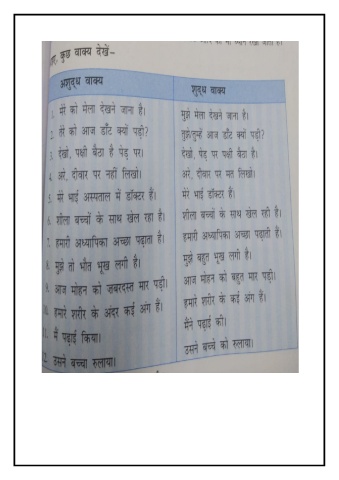 कुछ वाक्य देखें–
अशुद्ध वाक्य
शुद्ध वाक्य
1. मेरे को मेला देखने जाना है।
मुझे मेला देखने जाना है।
2. तेरे को आज डाँट क्यों पड़ी?
तुझे/तुम्हें आज डाँट क्यों पड़ी?
3. देखो, पक्षी बैठा है पेड़ पर।
देखो, पेड़ पर पक्षी बैठा है।
4. अरे, दीवार पर नहीं लिखो।
अरे, दीवार पर मत लिखो।
5. मेरे भाई अस्पताल में डॉक्टर हैं।
मेरे भाई डॉक्टर हैं।
6. शीला बच्चों के साथ खेल रहा है।
शीला बच्चों के साथ खेल रही है।
7. हमारी अध्यापिका अच्छा पढ़ाता है।
हमारी अध्यापिका अच्छा पढ़ाती हैं।
8. मुझे तो भौत भूख लगी है।
मुझे बहुत भूख लगी है।
9. आज मोहन को जबरदस्त मार पड़ी।
आज मोहन को बहुत मार पड़ी।
10. हमारे शरीर के अंदर कई अंग हैं।
हमारे शरीर के कई अंग हैं।
11. मैं पढ़ाई किया।
मैंने पढ़ाई की।
12. उसने बच्चा रुलाया।
उसने बच्चे को रुलाया।